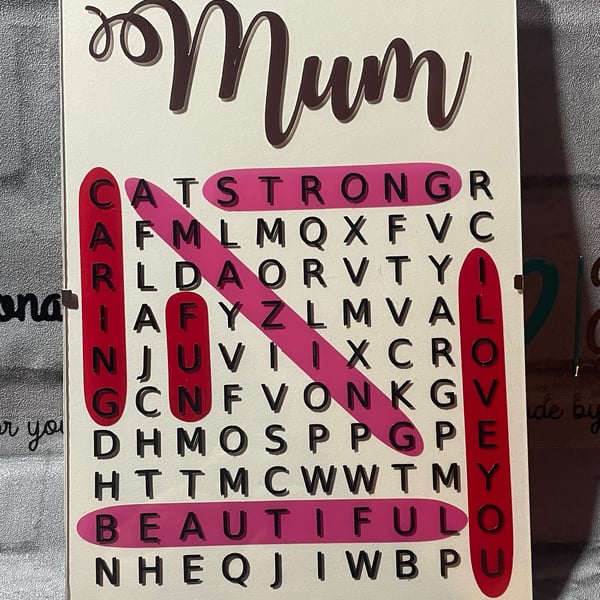 Mum
C A T S T R O N G R
A F M L M Q X F V C
R L D A O R V T Y I
I A F Y Z L M V A L
N J U V I I X C R O
G C N F V O N K G V
D H M O S P P G P E
H T T M C W W T M Y
B E A U T I F U L O
N H E Q J I W B P U